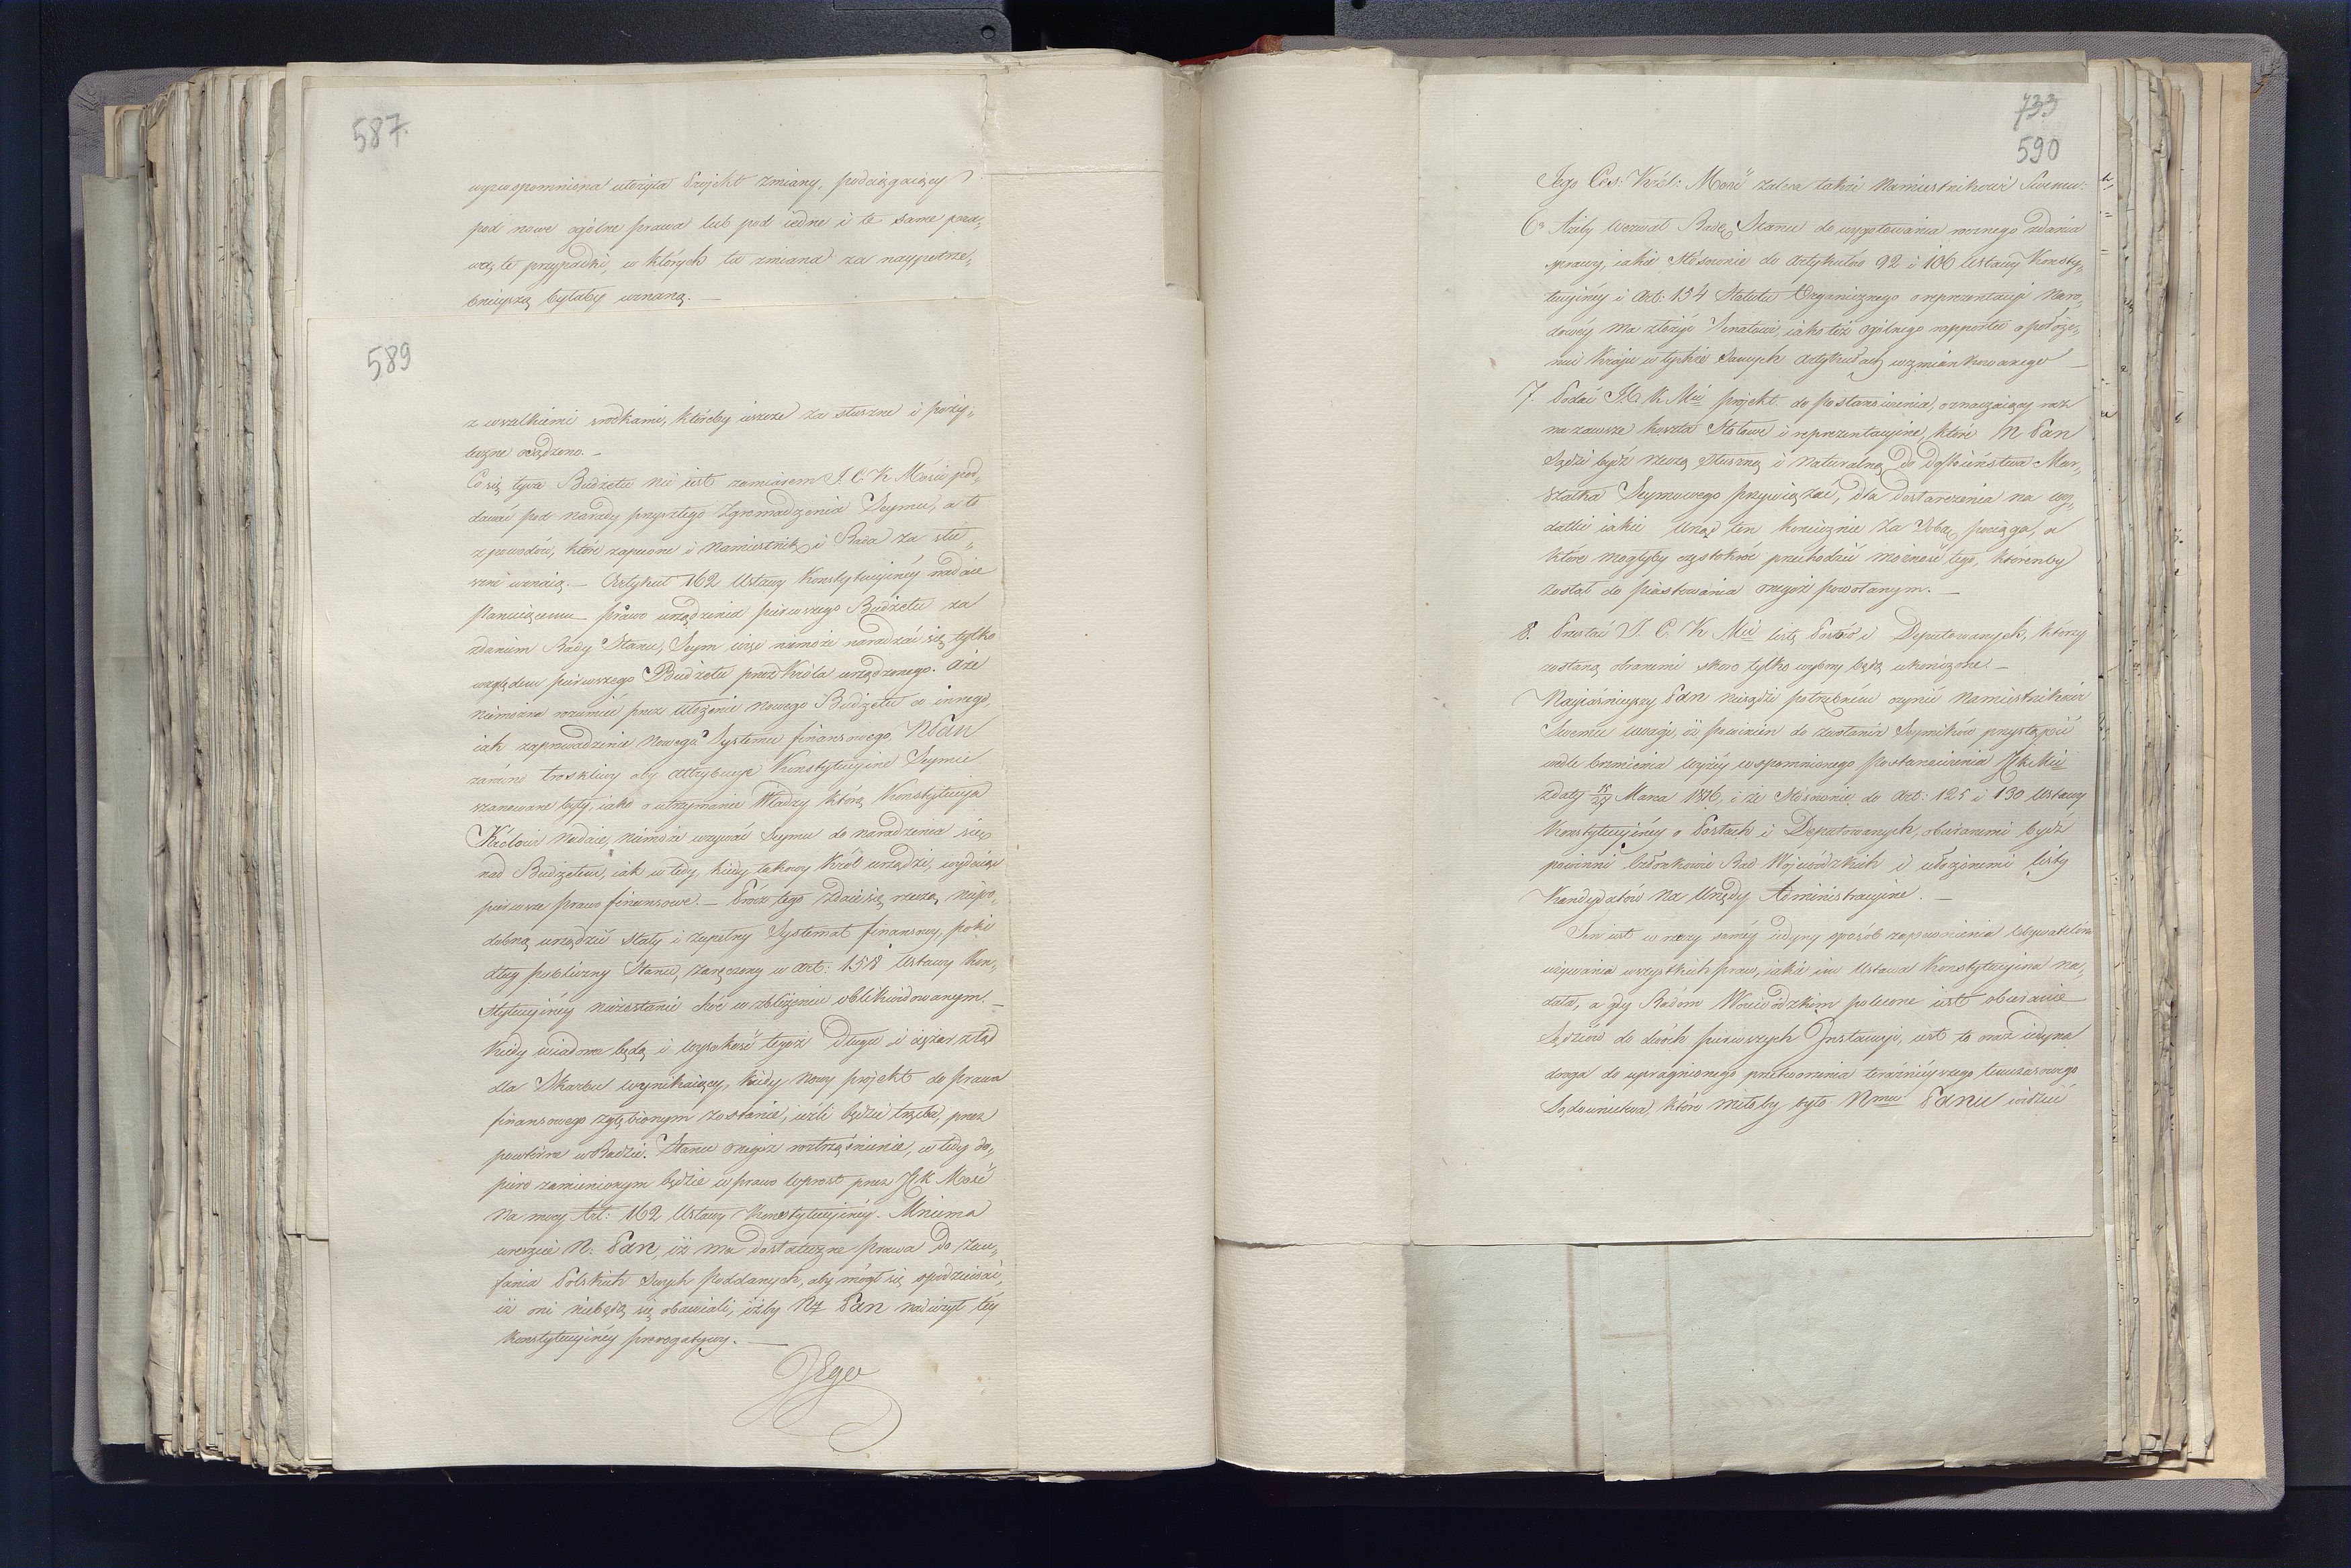 587.
wyżwspomniona ułożyła Projekt zmiany, podciągaiący
pod nowe ogólne prawa lub pod iedne i te same pod-
wagę te przypadki, w których ta zmiana za naypotrze-
bnieyszą byłaby uznaną. —
589
z wszelkiemi srodkami, któreby ieszcze za słuszne i poży-
teczne osądzono. —
Co się tycze Budżetu nie iest zamiarem J. C. K. Mości pod-
dawać pod narady przyszłego Zgromadzenia Seymu, a to
z powodów, które zapewne i Namiestnik i Rada za słu-
szne uznaią. — Artykuł 162 Ustawy Konstytucyinéy nadaie
Panuiącemu prawo urządzenia pierwszego Budżetu za
zdaniem Rady Stanu, Seym więc niemoże naradzać się tylko
względem pierwszego Budżetu przez Króla urządzonego. Aże
niemożna rozumieć przez ułożenie nowego Budżetu co innego,
iak zaprowadzenie nowego Systemu finansowego, NPan
zarówno troskliwy aby attrybucye Konstytucyine Seymu
szanowane były, iako o utrzymanie Władzy którą Konstytucya
Królowi nadaie, niemoże wzywać Seymu do naradzenia się
nad Budżetem, iak wtedy, kiedy takowy Król urządzi, wydaiąc
pierwsze prawo finansowe. — Prócz tego zdaie się rzeczą niepo-
dobną urządzić stały i zupełny Systemat finansowy, poki
dług publiczny Stanu, zaręczony w Art: 158 Ustawy Kon-
stytucyinéy niezostanie choć w zbliżeniu oblikwidowanym. —
Kiedy wiadome będą i wysokość tegoż Długu i ciężar ztąd
dla Skarbu wynikaiący, kiedy nowy projekt do prawa
finansowego zgłębionym zostanie, ieżli będzie trzeba, przez
powtórne w Radzie Stanu onegoż roztrząśnienie, wtedy do-
piero zamienionym będzie w prawo wprost przez JCK Mość
na mocy Art: 162 Ustawy Konstytucyinéy. Mniema
wreszcie N. Pan, iż ma dostateczne prawa do zau-
fania Polskich Swych Poddanych, aby mógł się spodziewać,
iż oni niebędą się obawiali, iżby Ny Pan nadużył téy
konstytucyinéy prerogatywy. —
Jego
733
590
Jego Ces: Król: Mość zaleca także Namiestnikowi Swemu:
6o Ażeby wezwał Radę Stanu do wygotowania rocznego zdania
sprawy, iakie stosownie do Artykułów 92 i 106 Ustawy Konsty-
tucyinéy i Art: 134 Statutu Organicznego o reprezentacyi Naro-
dowéy ma złożyć Senatowi, iako też ogólnego rapportu o położe-
niu Kraju w tychże samych Artykułach wzmiankowanego —
7. Podać J. C. K. Mci projekt do Postanowienia, oznaczaiący raz
na zawsze koszta Stołowe i reprezentacyine, które N Pan
sądzi bydź rzeczą słuszną i naturalną do Dostoieństwa Mar-
szałka Seymowego przywiązać, dla dostarczenia na wy-
datki iakie Urząd ten koniecznie za sobą pociąga, a
które mogłyby częstokroć przechodzić możność tego, którenby
został do piastowania onegoż powołanym. —
8. Przesłać J. C. K. Mci listę Posłów i Deputowanych, którzy
zostaną obranemi skoro tylko wybory będą ukończone. —
Nayiaśnieyszy Pan niesądzi potrzebném czynić Namiestnikowi
Swemu uwagi, iż powinien do zwołania Seymików przystąpić
wedle brzmienia wyżéy wspomnionego Postanowienia JCKMci
z daty 15/27 Marca 1816, i że stosownie do Art: 125 i 130 Ustawy
Konstytucyinéy o Posłach i Deputowanych, obieranemi bydź
powinni Członkowie Rad Wojewódzkich i ułożonemi listy
Kandydatów na Urzędy Administracyine. —
Ten iest w rzeczy saméy iedyny sposób zapewnienia Obywatelom
używania wszystkich praw, iakie im Ustawa Konstytucyina na-
dała, a gdy Radom Woiewodzkim polecone iest obieranie
Sędziów do dwóch pierwszych Instancyi, iest to oraz iedyna
droga do upragnionego przetworzenia teraźnieyszego tymczasowego
Sądownictwa, które miłoby było Nmu Panu widzieć